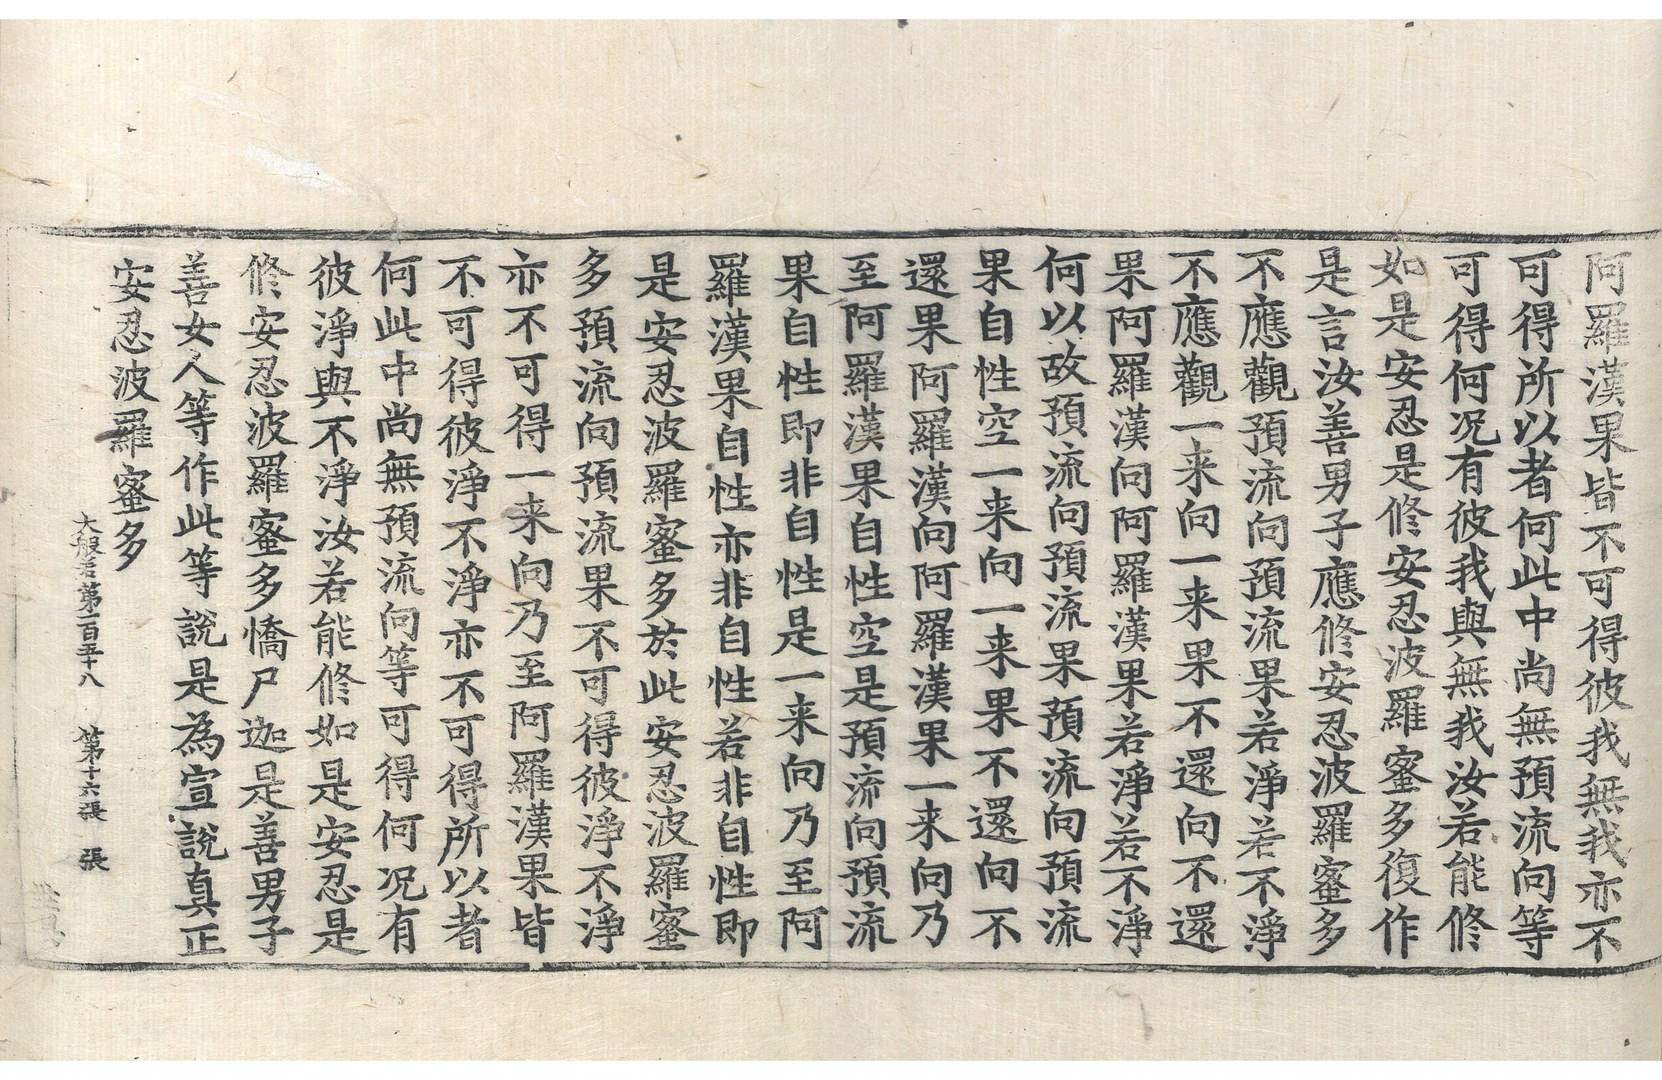 阿羅漢果皆不可得彼我無我亦不
可得所以者何此中尚無預流向等
可得何况有彼我與無我汝若能修
如是安忍是修安忍波羅蜜多復作
是言汝善男子應修安忍波羅蜜多
不應觀預流向預流果若淨若不淨
不應觀一来向一来果不還向不還
果阿羅漢向阿羅漢果若淨若不淨
何以故預流向預流果預流向預流
果自性空一来向一来果不還向不
還果阿羅漢向阿羅漢果一来向乃
至阿羅漢果自性空是預流向預流
果自性即非自性是一来向乃至阿
羅漢果自性亦非自性若非自性即
是安忍波羅蜜多於此安忍波羅蜜
多預流向預流果不可得彼淨不淨
亦不可得一来向乃至阿羅漢果皆
不可得彼淨不淨亦不可得所以者
何此中尚無預流向等可得何况有
彼淨與不淨汝若能修如是安忍是
修安忍波羅蜜多憍尸迦是善男子
善女人等作此等說是為宣說真正
安忍波羅蜜多
大般若第一百五十八 第十六張 張